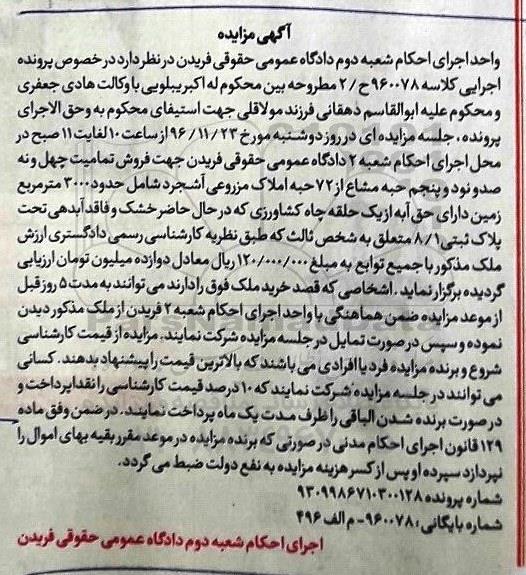 آگهی مزایده
واحد اجرای احکام شعبه دوم دادگاه عمومی حقوقی فریدن در نظر دارد در خصوص پرونده
اجرایی کلاسه ۹۶۰۰۷۸ ح/۲ مطروحه بین محکوم له اکبر ییلویی با وکالت هادی جعفری
و محکوم علیه ابوالقاسم دهقانی فرزند مولاقلی جهت استیفای محکوم به وحق الاجرای
پرونده ، جلسه مزایده ای در روز دوشنبه مورخ ۹۶/۱۱/۲۳ از ساعت ۱۰ لغایت ۱۱ صبح در
محل اجرای احکام شعبه ۲ دادگاه عمومی حقوقی فریدن جهت فروش تمامیت چهل و نه
صدو نود و پنجم حبه مشاع از ۷۲ حبه املاک مزروعی آشجرد شامل حدود ۳۰۰۰ مترمربع
زمین دارای حق آبه از یک حلقه چاه کشاورزی که در حال حاضر خشک و فاقد آبدهی تحت
پلاک ثبتی ۸/۱ متعلق به شخص ثالث که طبق نظریه کارشناسی رسمی دادگستری ارزش
ملک مذکور با جمیع توابع به مبلغ ۱۲۰/۰۰۰/۰۰۰ ریال معادل دوازده میلیون تومان ارزیابی
گردیده برگزار نماید . اشخاصی که قصد خرید ملک فوق را دارند می توانند به مدت ۵ روز قبل
از موعد مزایده ضمن هماهنگی با واحد اجرای احکام شعبه ۲ فریدن از ملک مذکور دیدن
نموده و سپس در صورت تمایل در جلسه مزایده شرکت نمایند. مزایده از قیمت کارشناسی
شروع و برنده مزایده فرد یا افرادی می باشند که بالاترین قیمت را پیشنهاد بدهند. کسانی
می توانند در جلسه مزایده شرکت نمایند که ۱۰ درصد قیمت کارشناسی را نقدا پرداخت و
در صورت برنده شدن الباقی را ظرف مدت یک ماه پرداخت نمایند. در ضمن وفق ماده
۱۲۹ قانون اجرای احکام مدنی در صورتی که برنده مزایده در موعد مقرر بقیه بهای اموال را
نپردازد سپرده او پس از کسر هزینه مزایده به نفع دولت ضبط می گردد.
شماره پرونده ۹۳۰۹۹۸۶۷۱۰۳۰۰۱۲۸
شماره بایگانی: ۹۶۰۰۷۸- م الف ۴۹۶
اجرای احکام شعبه دوم دادگاه عمومی حقوقی فریدن